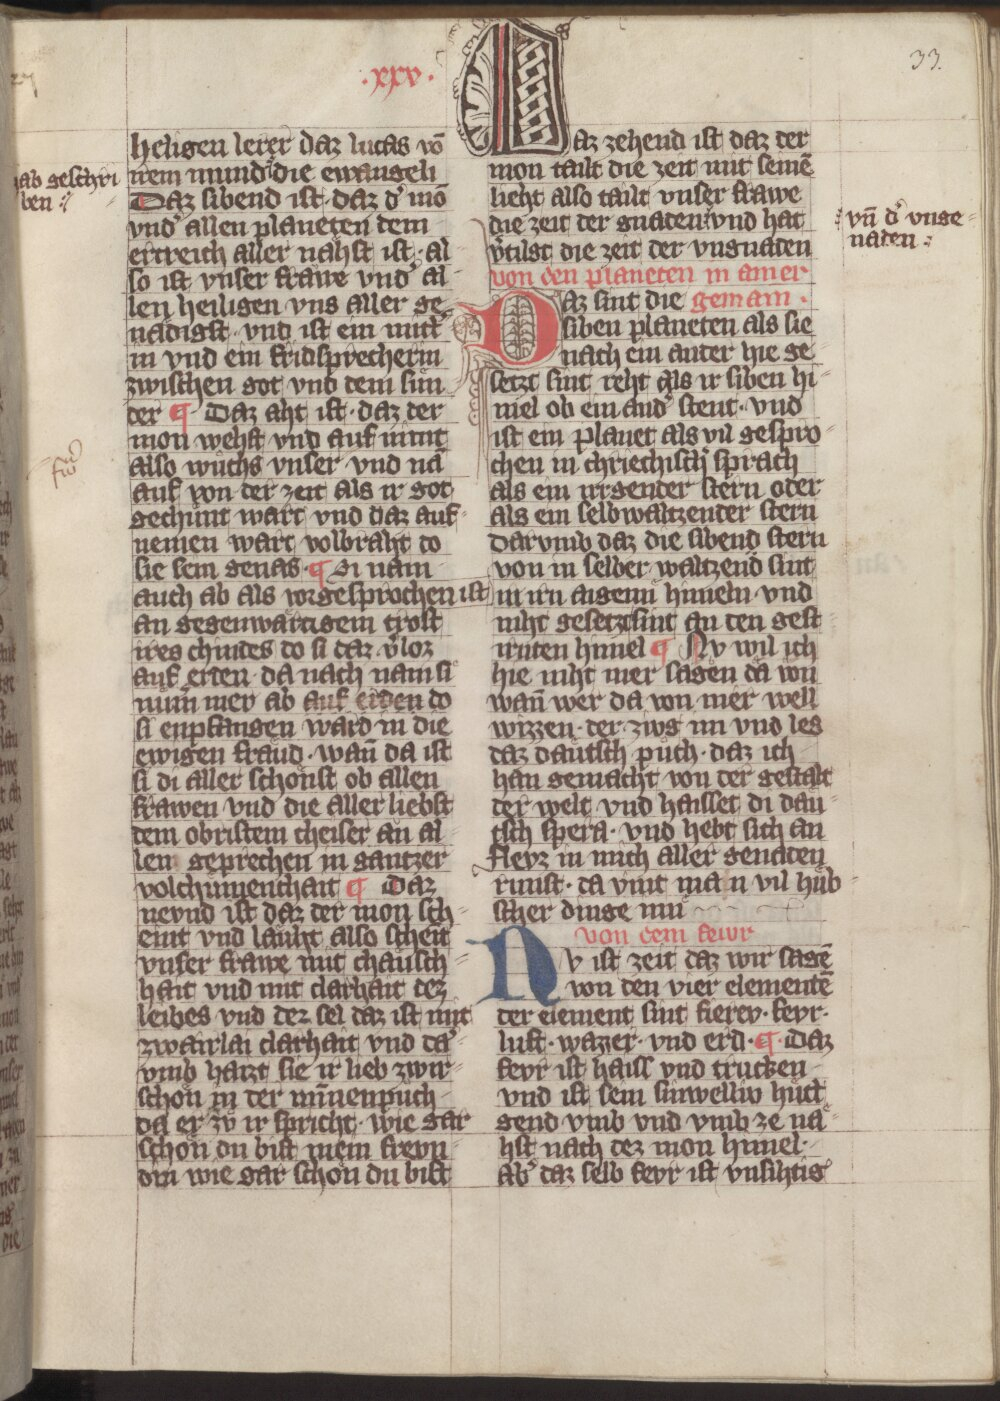 .xxv.
33.
heiligen lerer daz lucas võ
irem mund die ewangeli
hab geschri
ben
Daz sibend ist daz dˀ mõ
vndˀ allen planeten dem
ertreich aller nahst ist al
so ist vnser frawe vndˀ al
len heiligen vns aller ge
nadigst vnd ist ein mitlˀ
in vnd ein fridsprecherin
zwischen got vnd dem sün
der ¶ Daz aht ist daz der
mon wehst vnd auf nimt
also wuͦchs vnser vnd nã
auf von der zeit als ir got
gechünt wart vnd daz auf
nemen wart volbraht do
sie sein genas ¶ Si nam
auch ab als vorgesprochen ist
an gegenwärtigem trost
ires chindes do si daz vˀloz
auf erden da nach nam si
nüm̃ mer ab auf erden do
si enpfangen ward in die
ewigen fraüd wañ da ist
si di aller schonst ob allen
frawen vnd die aller liebst
dem obristem cheiser an al
len geprechen in gantzer
volchumenchait ¶ Daz
neünd ist daz der mon sch
eint vnd läuht also scheit
vnser frawe mit chäusch
hait vnd mit clarhait dez
leibes vnd dez sel daz ist mit
zwairlai clarhait vnd daˀ
vmb haizt sie ir lieb zwir
schon in der minnenpuch
da er zuͦ ir spricht wie gar
schon du bist mein frevn
din wie gar schon du bist
Daz zehend ist daz der
mon tailt die zeit mit seinē
lieht also tailt vnser frawe
die zeit der gnaden vnd hat
vñ dˀ vnge
naden
vˀtilgt die zeit der vngnaden
von den planeten in ainer
gemain .
Daz sint die
siben planeten als sie
nach ein ander hie ge
setzt sint reht als ir siben hi
mel ob ein andˀ stent vnd
ist ein planet als vil gespro
chen in chriechischˀ sprach
als ein irgender stern oder
als ein selbwaltzender stern
darvmb daz die sibend stern
von in selber waltzend sint
in irn aigenn himeln vnd
niht gesetzt sint an den gest
irnten himel ¶ Nv wil ich
hie niht mer sagen da von
wañ wer da von mer well
wizzen der zwg im vnd les
daz däutsch puch daz ich
han gemacht von der gestalt
der welt vnd haisset di däu
tsch spera vnd hebt sich an
Flevz in mich aller genaden
runst da vint man vil hüb
scher dinge inn
von dem fewr
Nv ist zeit daz wir sagẽ
von den vier elementẽ
der element sint fierev fevr
luft wazzer vnd erd ¶ Daz
fevr ist haiss vnd trucken
vnd ist sein sinwelliv hutt
gend vmb vnd vmb ze na
hst nach dez mon himel
Abˀ daz selb fevr ist vnsihtig